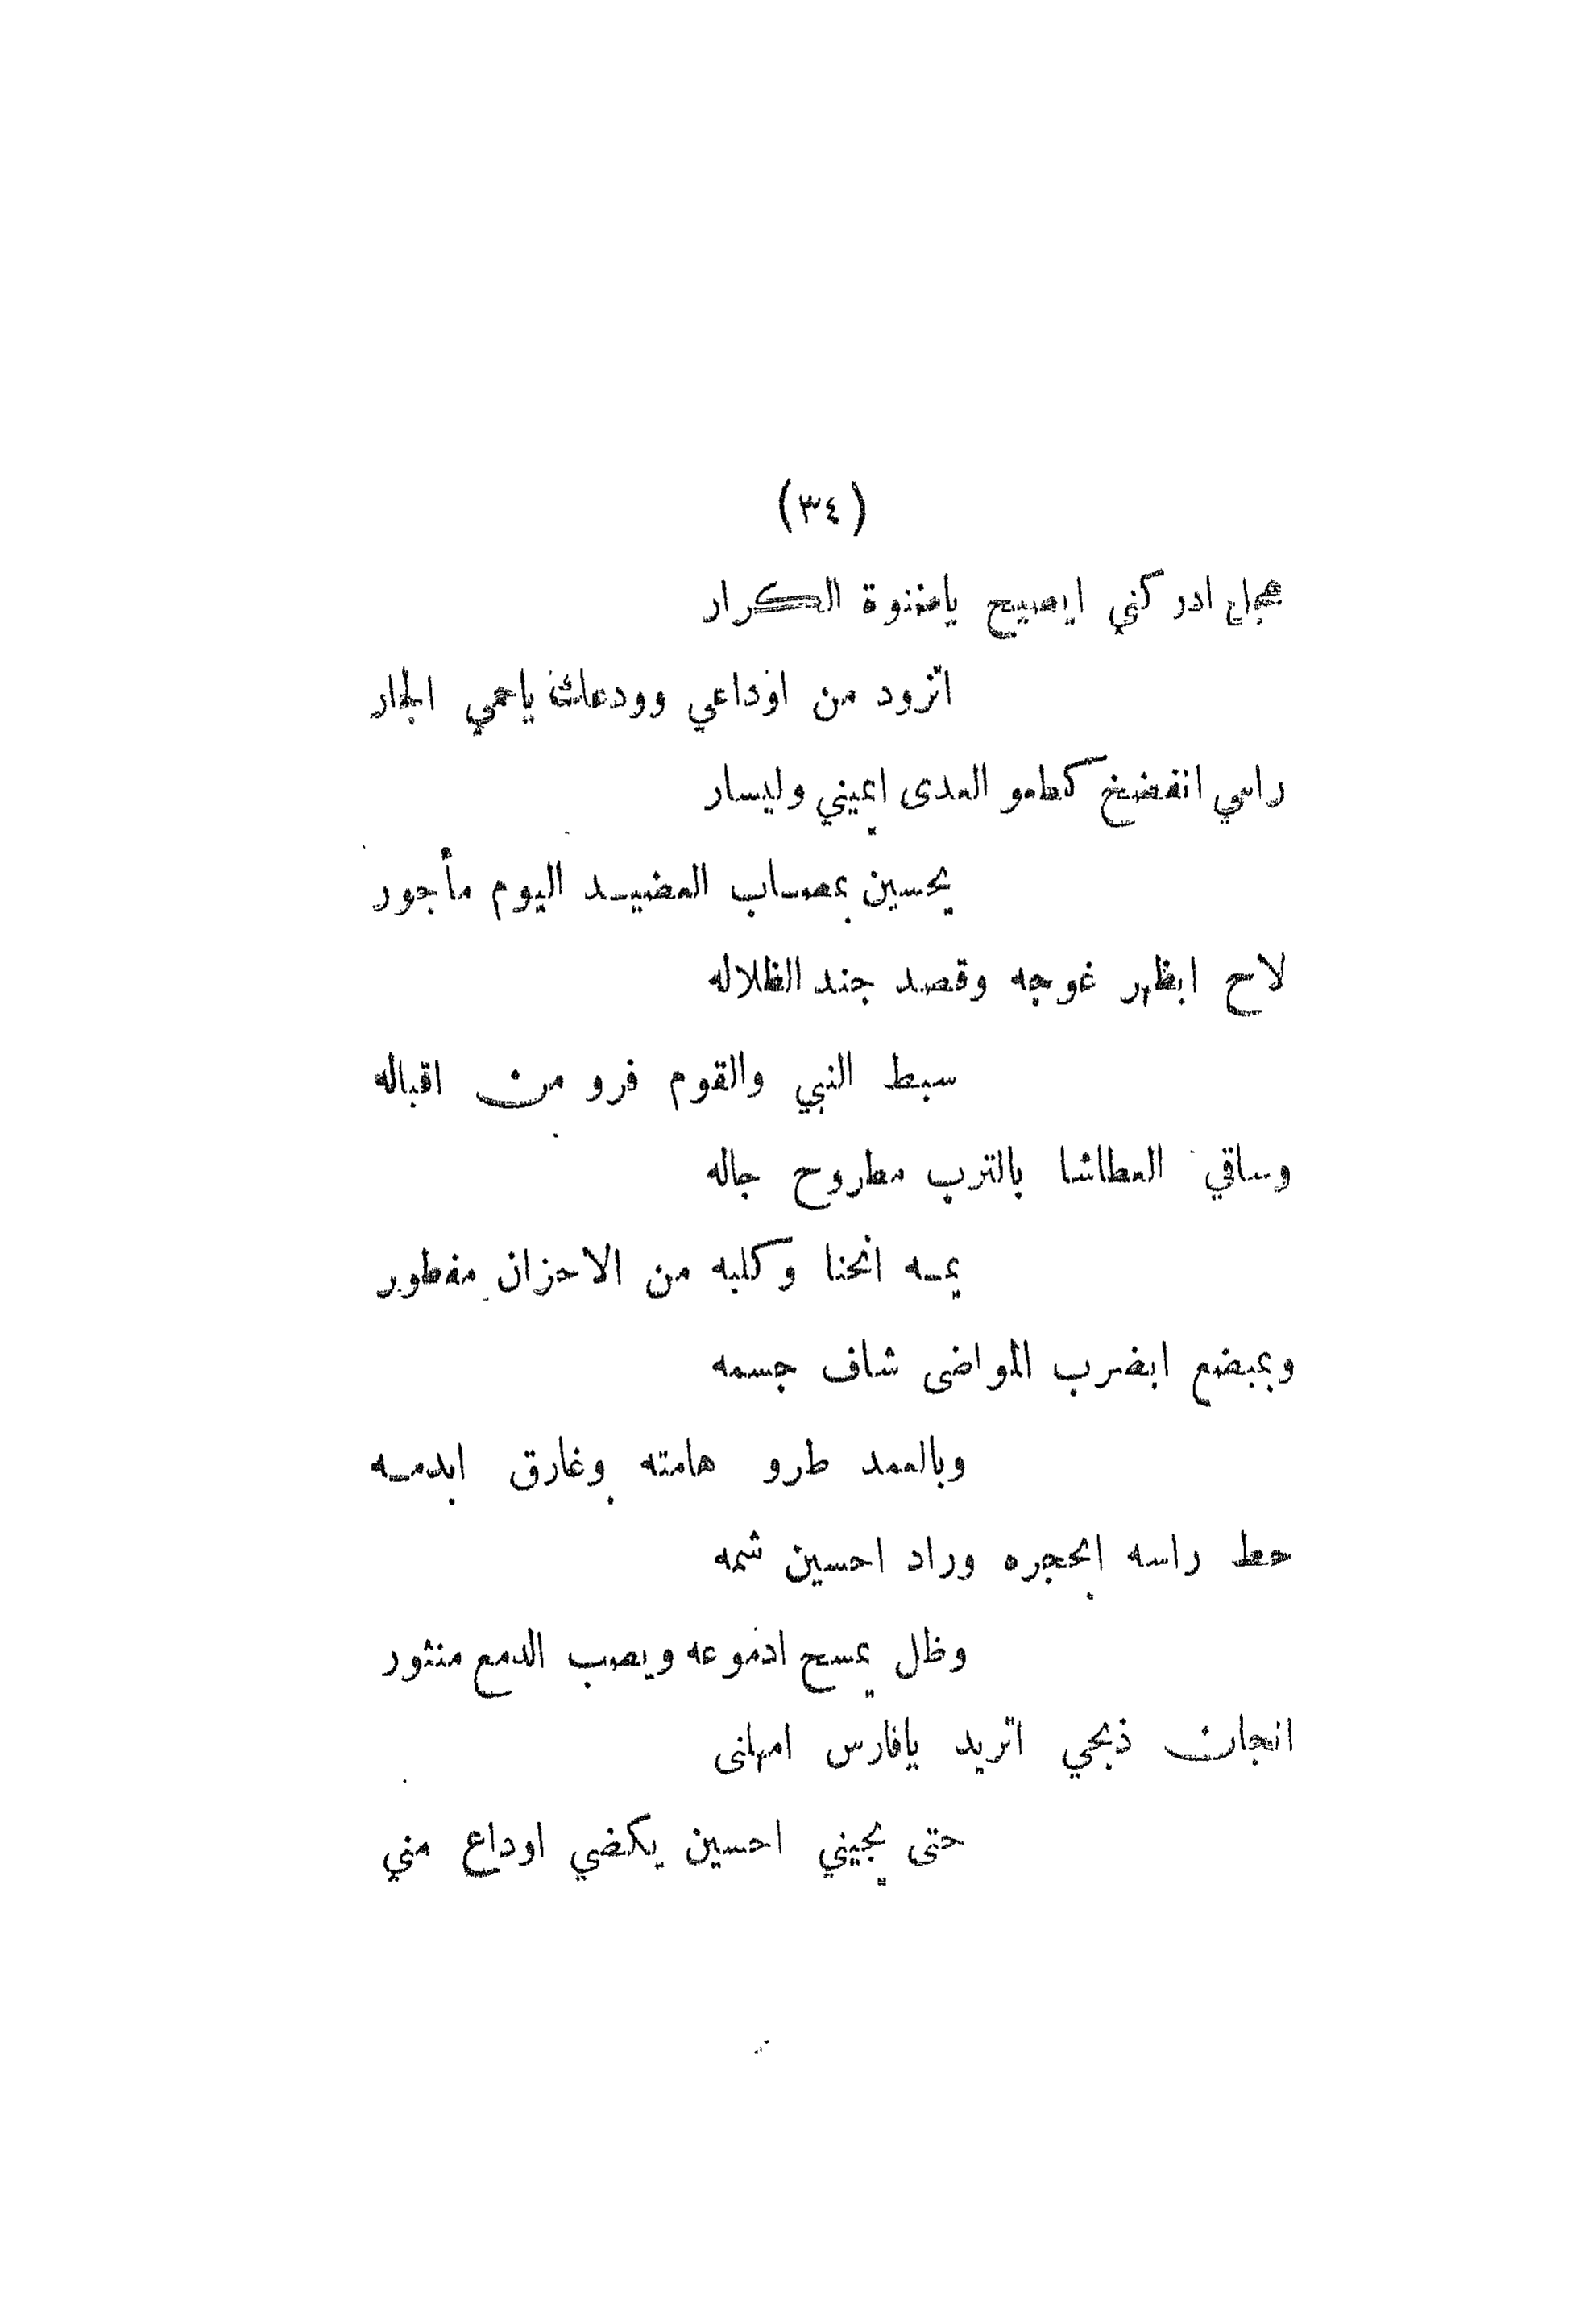 (٣٤)
عجل ادركني ايصيح يامغنوة الكرار
اتزود من اوداعي وودعك ياحمي الجار
راسي انفضخ كطعو العدى ايميني وليسار
يحسين بمصاب العضيد اليوم مأجور
لاح ابظهر غوجه وقصد جند الظلاله
سبط النبي والقوم فرو من اقباله
وساقي العطاشا بالترب مطروح جاله
يمه انحنا وكلبه من الاحزان مفطور
وبمبضع ابضرب المواضى شاف جسمه
وبالعمد طرو هامته وغارق ابدمه
حط راسه ابحجره وراد احسين شمه
وظل يمسح ادموعه ويصب الدمع منثور
انجان ذبحي اتريد يافارس امهلنى
حتى يجيني احسين يكضي اوداع مني